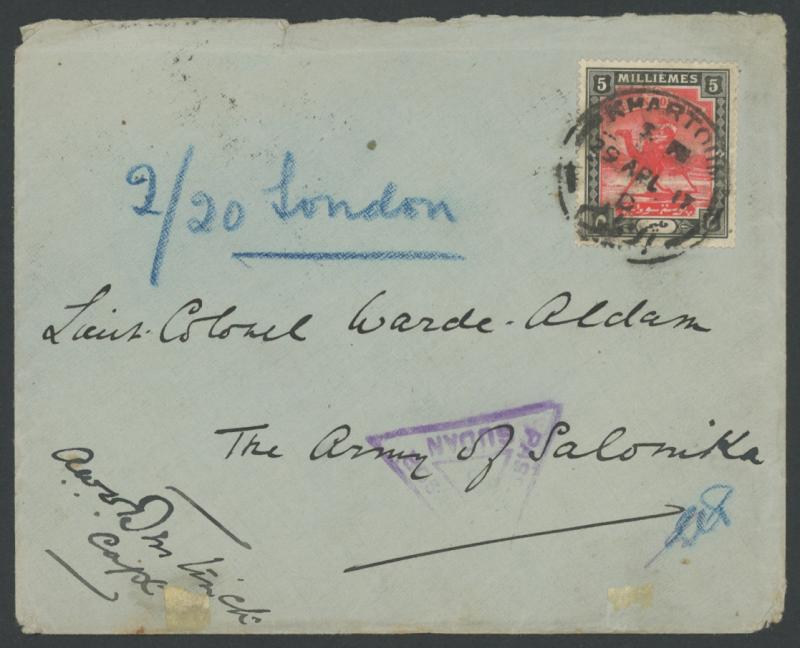 5 MILLIÈMES 5
KHARTOUM
29 APL 17
2/20 London
Lieut-Colonel Warde-Aldam
The Army of Salonika
SUDAN
Capt